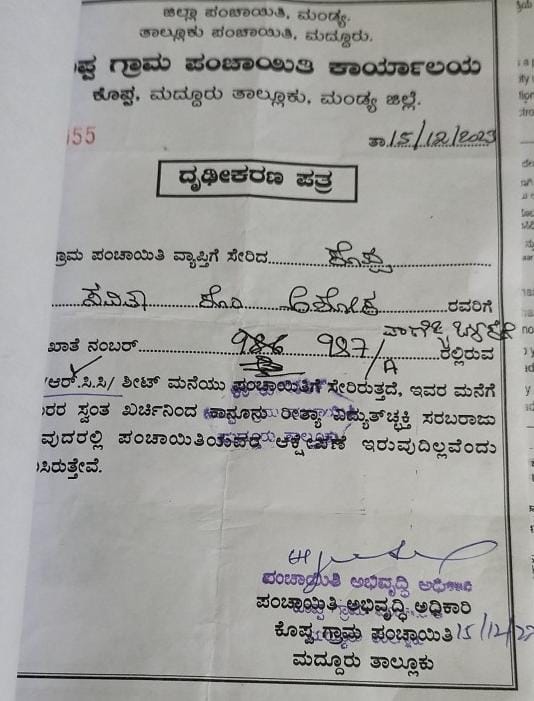 ಜಿಲ್ಲಾ ಪಂಚಾಯಿತಿ, ಮಂಡ್ಯ.
ತಾಲ್ಲೂಕು ಪಂಚಾಯಿತಿ, ಮದ್ದೂರು.
ಗ್ರಾಮ ಪಂಚಾಯಿತಿ ಕಾರ್ಯಾಲಯ
ಕೊಪ್ಪ, ಮದ್ದೂರು ತಾಲ್ಲೂಕು, ಮಂಡ್ಯ ಜಿಲ್ಲೆ.
55 ತಾ. 15/12/2023
ದೃಢೀಕರಣ ಪತ್ರ
ಗ್ರಾಮ ಪಂಚಾಯಿತಿ ವ್ಯಾಪ್ತಿಗೆ ಸೇರಿದ ಕೊಪ್ಪ
ಸವಿತಾ ಕೋಂ ಅಶೋಕ ರವರಿಗೆ
ಖಾತೆ ನಂಬರ್ 987/A ರಲ್ಲಿರುವ
/ಆರ್.ಸಿ.ಸಿ/ ಶೀಟ್ ಮನೆಯು ಪಂಚಾಯಿತಿಗೆ ಸೇರಿರುತ್ತದೆ, ಇವರ ಮನೆಗೆ
ಸ್ವಂತ ಖರ್ಚಿನಿಂದ ಕಾನೂನು ರೀತ್ಯಾ ವಿದ್ಯುತ್‌ಚ್ಛಕ್ತಿ ಸರಬರಾಜು
ಪಂಚಾಯಿತಿಯವರ ಆಕ್ಷೇಪಣೆ ಇರುವುದಿಲ್ಲವೆಂದು
ಪಂಚಾಯಿತಿ ಅಭಿವೃದ್ಧಿ ಅಧಿಕಾರಿ
ಪಂಚಾಯಿತಿ ಅಭಿವೃದ್ಧಿ ಅಧಿಕಾರಿ
ಕೊಪ್ಪ ಗ್ರಾಮ ಪಂಚಾಯಿತಿ 15/12/23
ಮದ್ದೂರು ತಾಲ್ಲೂಕು